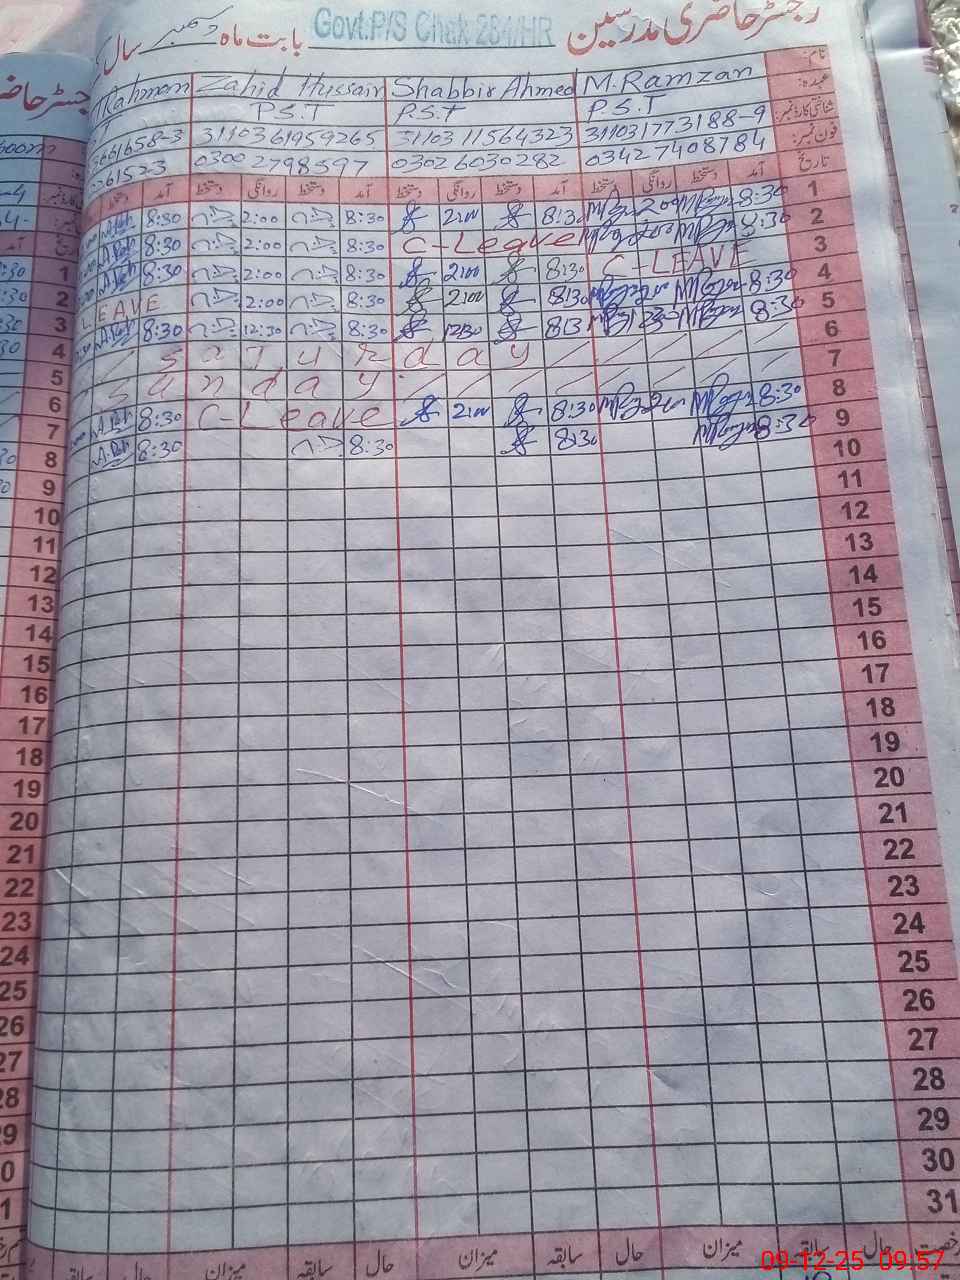 رجسٹر حاضری مدرسین Govt.P/S Chak 284/HR بابت ماہ دسمبر سال
نام: M.Ramzan Shabbir Ahmed Zahid Hussain Rahman
عہدہ: P.S.T P.S.T P.S.T T
شناختی کارڈ نمبر: 311031773188-9 3110311564323 3110361959265 3661658-3
فون نمبر: 03427408784 03026030282 03002798597 61523
تاریخ آمد دستخط روانگی دستخط آمد دستخط روانگی دستخط آمد دستخط روانگی دستخط آمد دستخط
1 8:30 2:00 8:30 2:00 8:30 2:00 8:30
2 8:30 2:00 C-Leave 8:30 2:00 8:30
3 C-LEAVE 8:30 2:00 8:30 2:00 8:30
4 8:30 8:30 2:00 8:30 2:00 LEAVE
5 8:30 8:30 12:30 8:30 12:30 8:30
6 Saturday
7 Sunday
8 8:30 8:30 2:00 C-Leave 8:30
9 8:30 8:30 8:30 8:30
10
11
12
13
14
15
16
17
18
19
20
21
22
23
24
25
26
27
28
29
30
31
رخصت حال سابقہ میزان حال سابقہ میزان حال سابقہ میزان حال سابقہ
رجسٹر حاضری
1
2
3
4
5
6
7
8
9
10
11
12
13
14
15
16
17
18
19
20
21
22
23
24
25
26
27
28
29
0
1
09-12-25 09:57